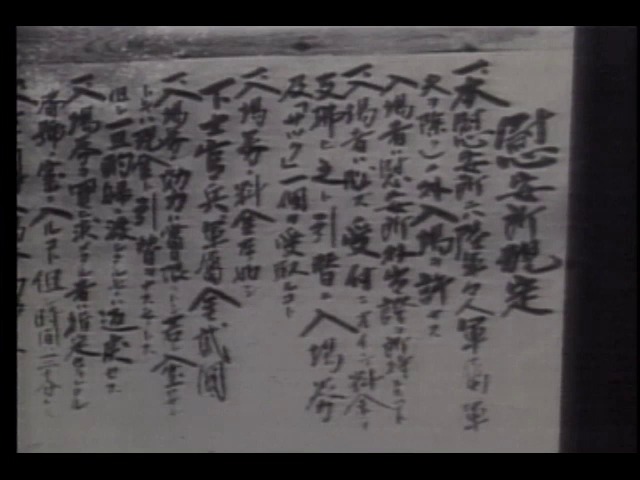 慰安所規定
一、本慰安所ニハ陸軍々人軍属(軍
夫ヲ除ク)ノ外入場ヲ許サズ
入場者ハ慰安所外出證ヲ所持スルコト
一、入場者ハ必ズ受付ニオイテ料金ヲ
支拂ヒ之ト引替ニ入場券
及「サック」一個ヲ受取ルコト
一、入場券ノ料金左ノ如シ
下士官、兵、軍属金貳圓
一、入場券ノ効力ハ當日限リトシ若シ入室セザ
ルトキハ現金ト引替ヲナスモノトス
但シ一旦酌婦ニ渡シタルモノハ返戻セズ
一、入場券ヲ買ヒ求メタル者ハ指定セラレタル
番號ノ室ニ入ルコト但シ時間ハ三十分トス